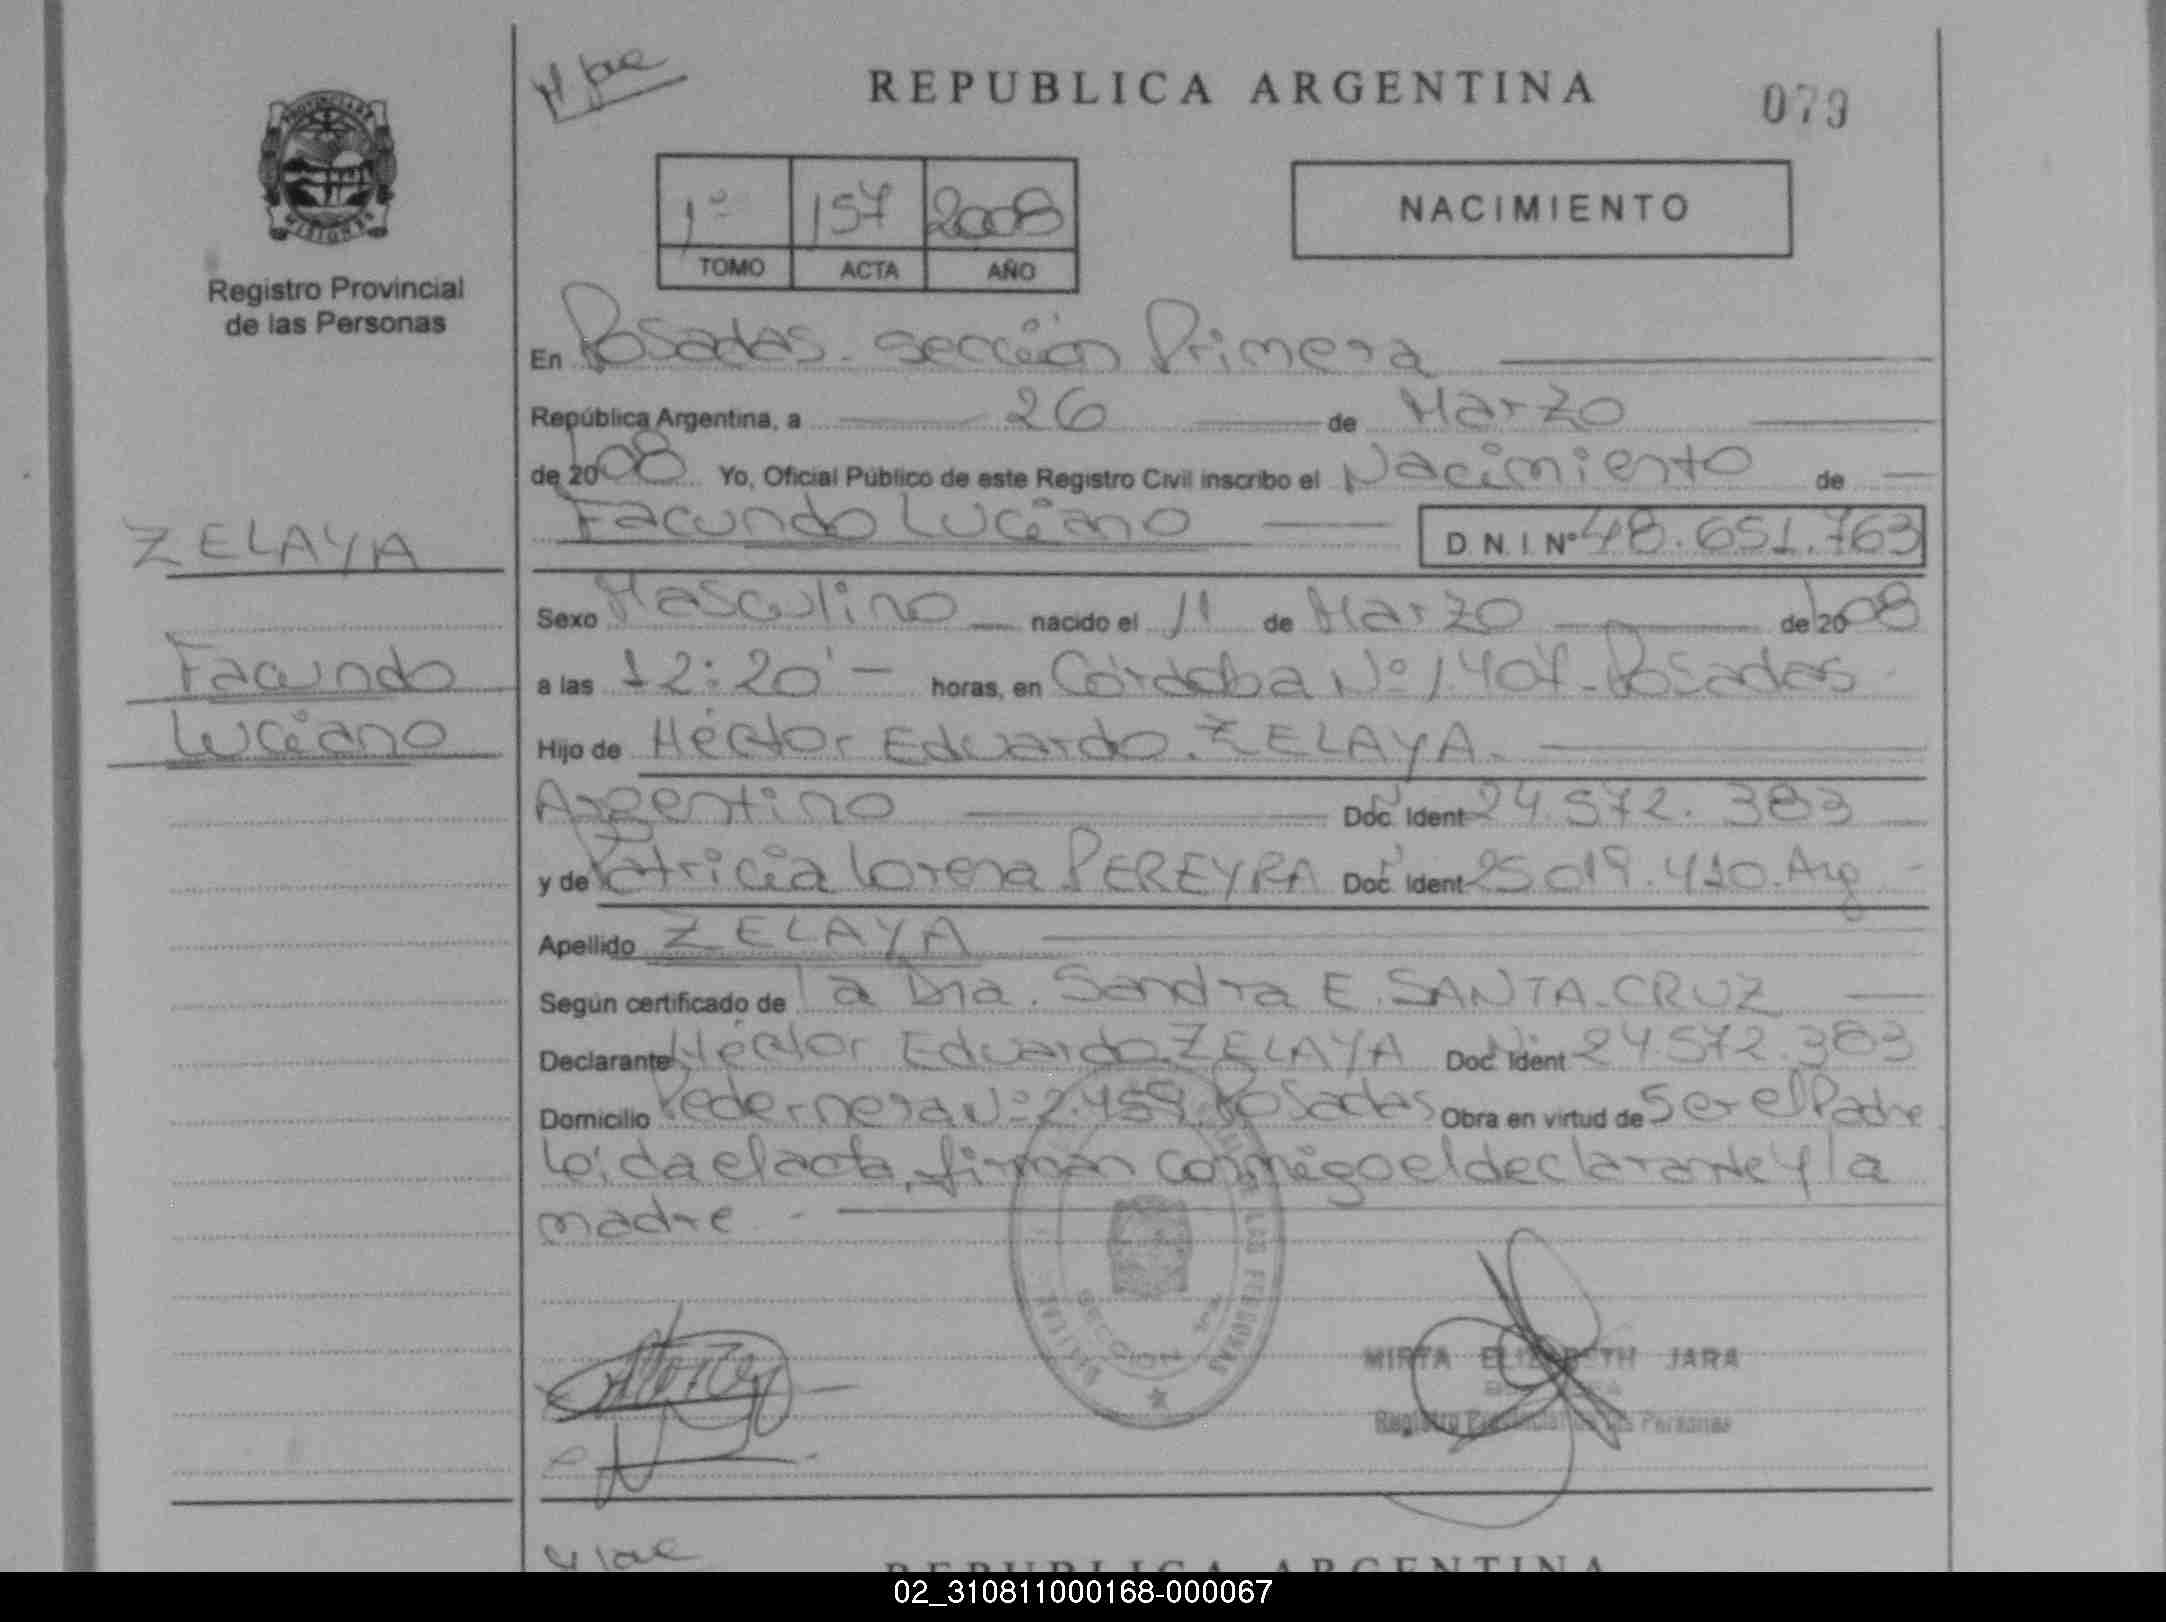 H. Jac
REPUBLICA ARGENTINA
079
PROVINCIA DE MISIONES
Registro Provincial
de las Personas
1º 157 2008
TOMO ACTA AÑO
NACIMIENTO
En Posadas. sección Primera
República Argentina, a 26 de Marzo
de 2008 Yo, Oficial Público de este Registro Civil inscribo el Nacimiento de
Facundo Luciano D. N. I. Nº 48.651.763
ZELAYA
Facundo
Luciano
Sexo Masculino nacido el 11 de Marzo de 2008
a las 12:20' horas, en Córdoba Nº 1.407 - Posadas
Hijo de Héctor Eduardo. ZELAYA.
Argentino Doc. Ident 24.572.383
y de Patricia Lorena PEREYRA Doc. Ident 25019.410. Arg
Apellido ZELAYA
Según certificado de la Dra. Sandra E. SANTA-CRUZ
Declarante Héctor Eduardo ZELAYA Doc. Ident 24.572.383
Domicilio Pedernera Nº 2.459 Posadas Obra en virtud de Ser el Padre
Leida el acta, firman conmigo el declarante y la
madre.
MIRTA ELIZABETH JARA
Registro Provincial de las Personas
REPUBLICA ARGENTINA
02_310811000168-000067